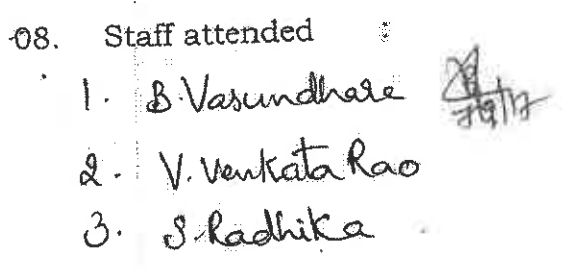 08. Staff attended :
1. B. Vasundhare
2. V. Venkata Rao
3. S. Radhika